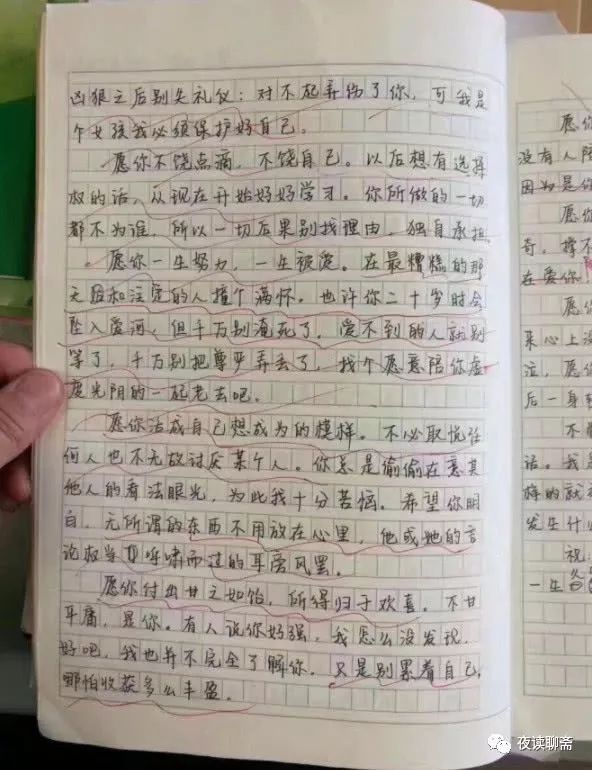 凶狠之后别失礼仪：对不起弄伤了你，可我是
个女孩我必须保护好自己。
愿你不饶点滴，不饶自己。以后想有选择
权的话，从现在开始好好学习。你所做的一切
都不为谁，所以一切后果别找理由，独自承担。
愿你一生努力，一生被爱。在最糟糕的那
天股和注定的人撞个满怀。也许你二十岁时会
坠入爱河，但千万别淹死了，爱不到的人就别
等了，千万别把尊严弄丢了，找个愿意陪你虚
度光阴的一起老去吧。
愿你活成自己想成为的模样。不必取悦任
何人也不无故讨厌某个人。你总是偷偷在意其
他人的看法眼光，为此我十分苦恼。希望你明
白，无所谓的东西不用放在心里，他或她的言
论权当呼啸而过的耳旁风罢。
愿你付出甘之如饴，所得归于欢喜。不甘
平庸，是你。有人说你好强，我怎么没发现，
好吧，我也并不完全了解你。只是别累着自己，
哪怕收获多么丰盈。
愿你
没有人陪
因为是你
愿你
奇，撑不
在爱你！
愿你
来心上没
泣，愿你
后一身轻
不管
话。我是
样的就
发生什
祝
一生
夜读聊斋